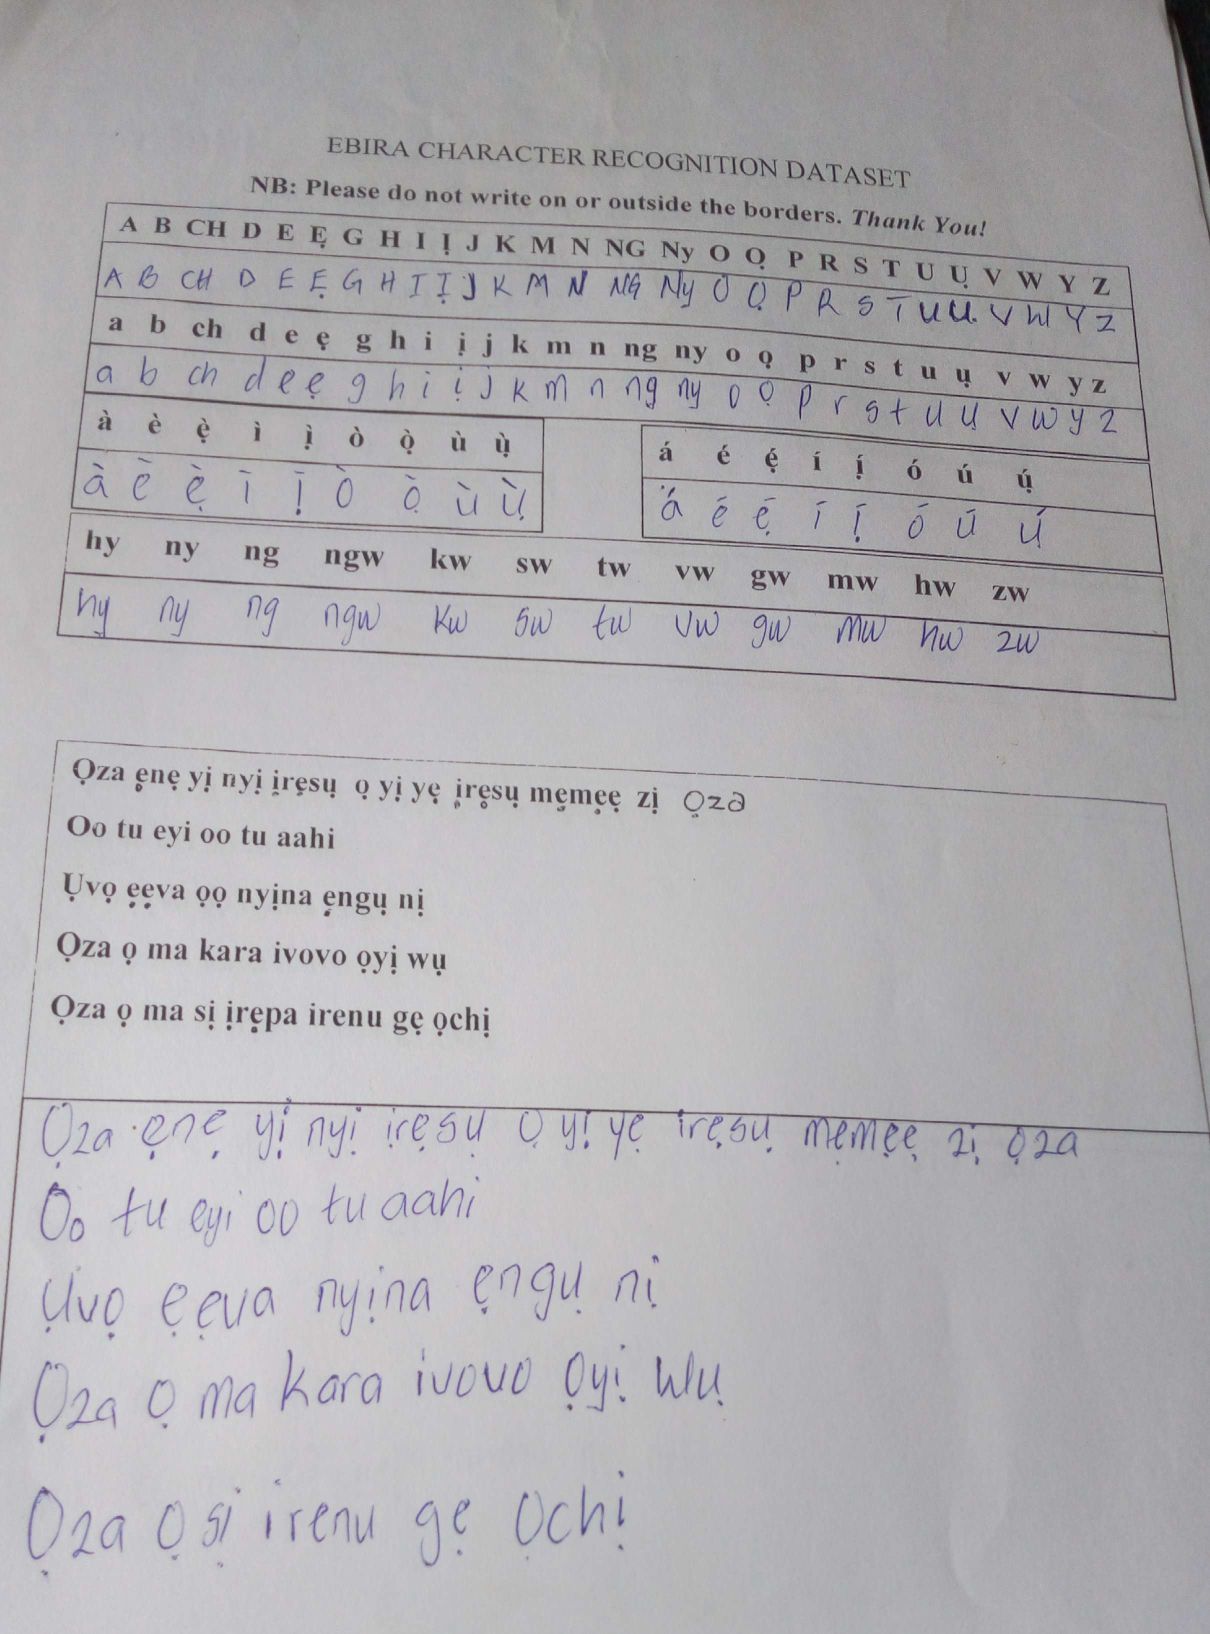 EBIRA CHARACTER RECOGNITION DATASET
NB: Please do not write on or outside the borders. Thank You!
A B CH D E Ẹ G H I Ị J K M N NG Ny O Ọ P R S T U Ụ V W Y Z
A B CH D E Ẹ G H I Ị J K M N NG Ny O Ọ P R S T U Ụ V W Y Z
a b ch d e ẹ g h i ị j k m n ng ny o ọ p r s t u ụ v w y z
a b ch d e ẹ g h i ị j k m n ng ny o ọ p r s t u ụ v w y z
à è ẹ̀ ì ị̀ ò ọ̀ ù ụ̀
à è ẹ̀ ì ị̀ ò ọ̀ ù ụ̀
á é ẹ́ í ị́ ó ú ụ́
á é ẹ́ í ị́ ó ú ụ́
hy ny ng ngw kw sw tw vw gw mw hw zw
hy ny ng ngw kw sw tw vw gw mw hw zw
Ọza ẹnẹ yị nyị ịrẹsụ ọ yị yẹ ịrẹsụ mẹmẹẹ zị ọza
Oo tu eyi oo tu aahi
Ụvọ ẹẹva ọọ nyịna ẹngụ nị
Ọza ọ ma kara ivovo ọyị wụ
Ọza ọ ma sị ịrẹpa irenu gẹ ọchị
Ọza ẹnẹ yị nyị ịrẹsụ ọ yị yẹ irẹsụ mẹmẹẹ zị ọza
Oo tu eyi oo tu aahi
Ụvọ ẹẹva nyịna ẹngụ nị
Ọza ọ ma kara ivovo ọyị wụ
Ọza ọ sị irenu gẹ ọchị